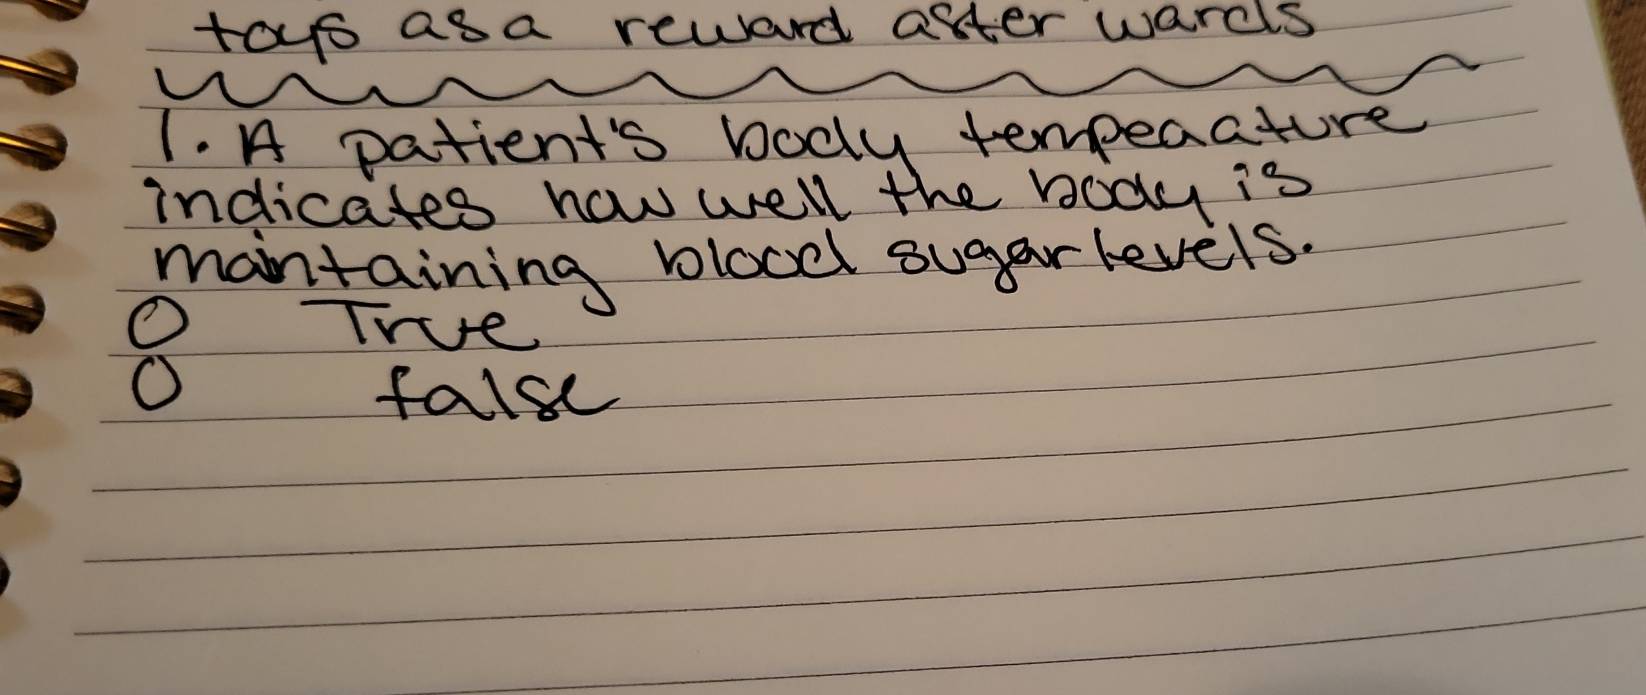 toys as a reward after wards
1. A patient's body tempeaature
indicates how well the body is
maintaining blood sugar levels.
O True
O false